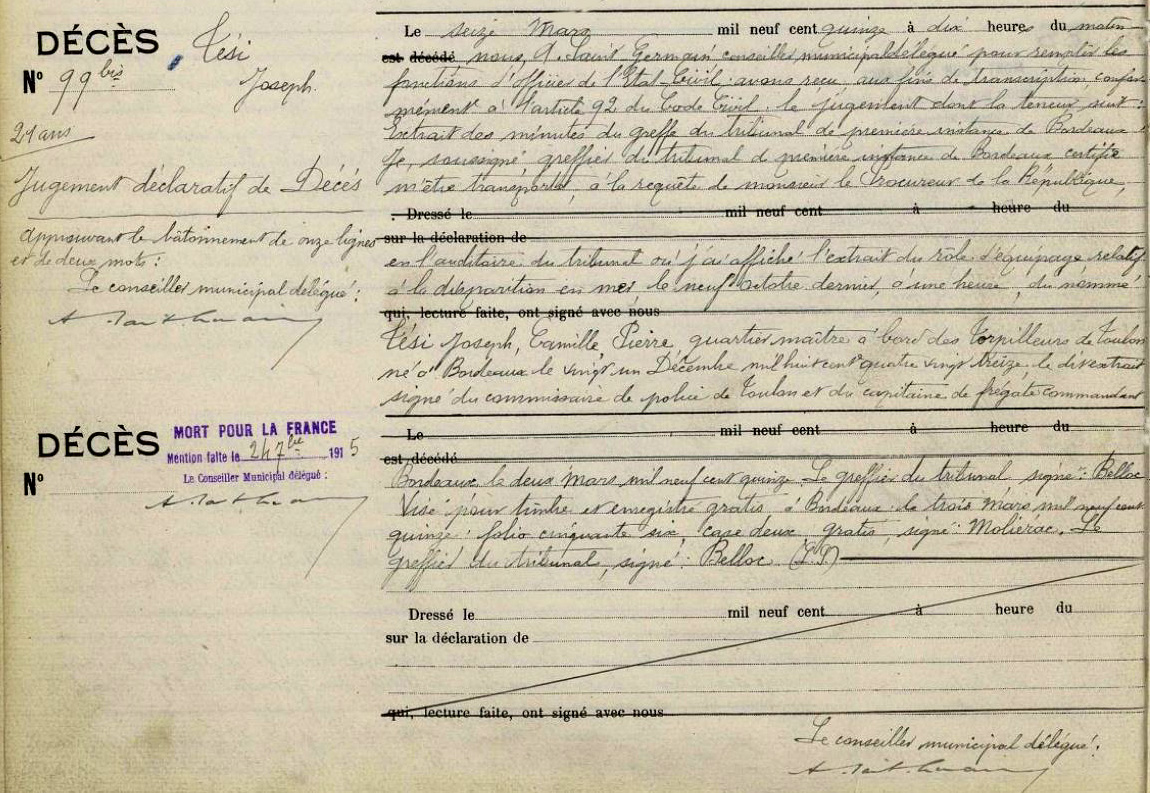 DÉCÈS
Nº 99 bis
Tési
Joseph.
21 ans
Jugement déclaratif de Décés
Approuvant le bâtonnement de onze lignes
et de deux mots :
Le conseiller municipal délégué :
DÉCÈS
Nº
MORT POUR LA FRANCE
Mention faite le 24 7bre 1915
Le Conseiller Municipal délégué :
Le seize Mars mil neuf cent quinze à dix heures du matin
est décédé nous, A. Saint Germain conseiller municipal délégué pour remplir les
fonctions d'officier de l'Etat Civil avons reçu, aux fins de transcription, confor-
mément à l'article 92 du Code Civil, le jugement dont la teneur suit :
Extrait des minutes du greffe du tribunal de première instance de Bordeaux
Je, soussigné greffier du tribunal de première instance de Bordeaux, certifie
m'être transporté, à la requête de monsieur le Procureur de la République,
Dressé le mil neuf cent à heure du
sur la déclaration de
en l'auditoire du tribunal où j'ai affiché l'extrait du rôle d'équipage relatif
à la disparition en mer le neuf octobre dernier, à une heure, du nommé
qui, lecture faite, ont signé avec nous
Tési Joseph, Camille, Pierre quartier maître à bord des Torpilleurs de Toulon
né à Bordeaux le vingt un Décembre mil huit cent quatre vingt treize, le dit extrait
signé du commissaire de police de Toulon et du capitaine de frégate commandant
Le mil neuf cent à heure du
est décédé
Bordeaux le deux Mars mil neuf cent quinze. Le greffier du tribunal signé : Belloc
Visé pour timbre et enregistré gratis à Bordeaux le trois Mars mil neuf cent
quinze : folio cinquante six, case deux, gratis, signé : Molierac. Le
greffier du tribunal, signé : Belloc
Dressé le mil neuf cent à heure du
sur la déclaration de
qui, lecture faite, ont signé avec nous
Le conseiller municipal délégué :